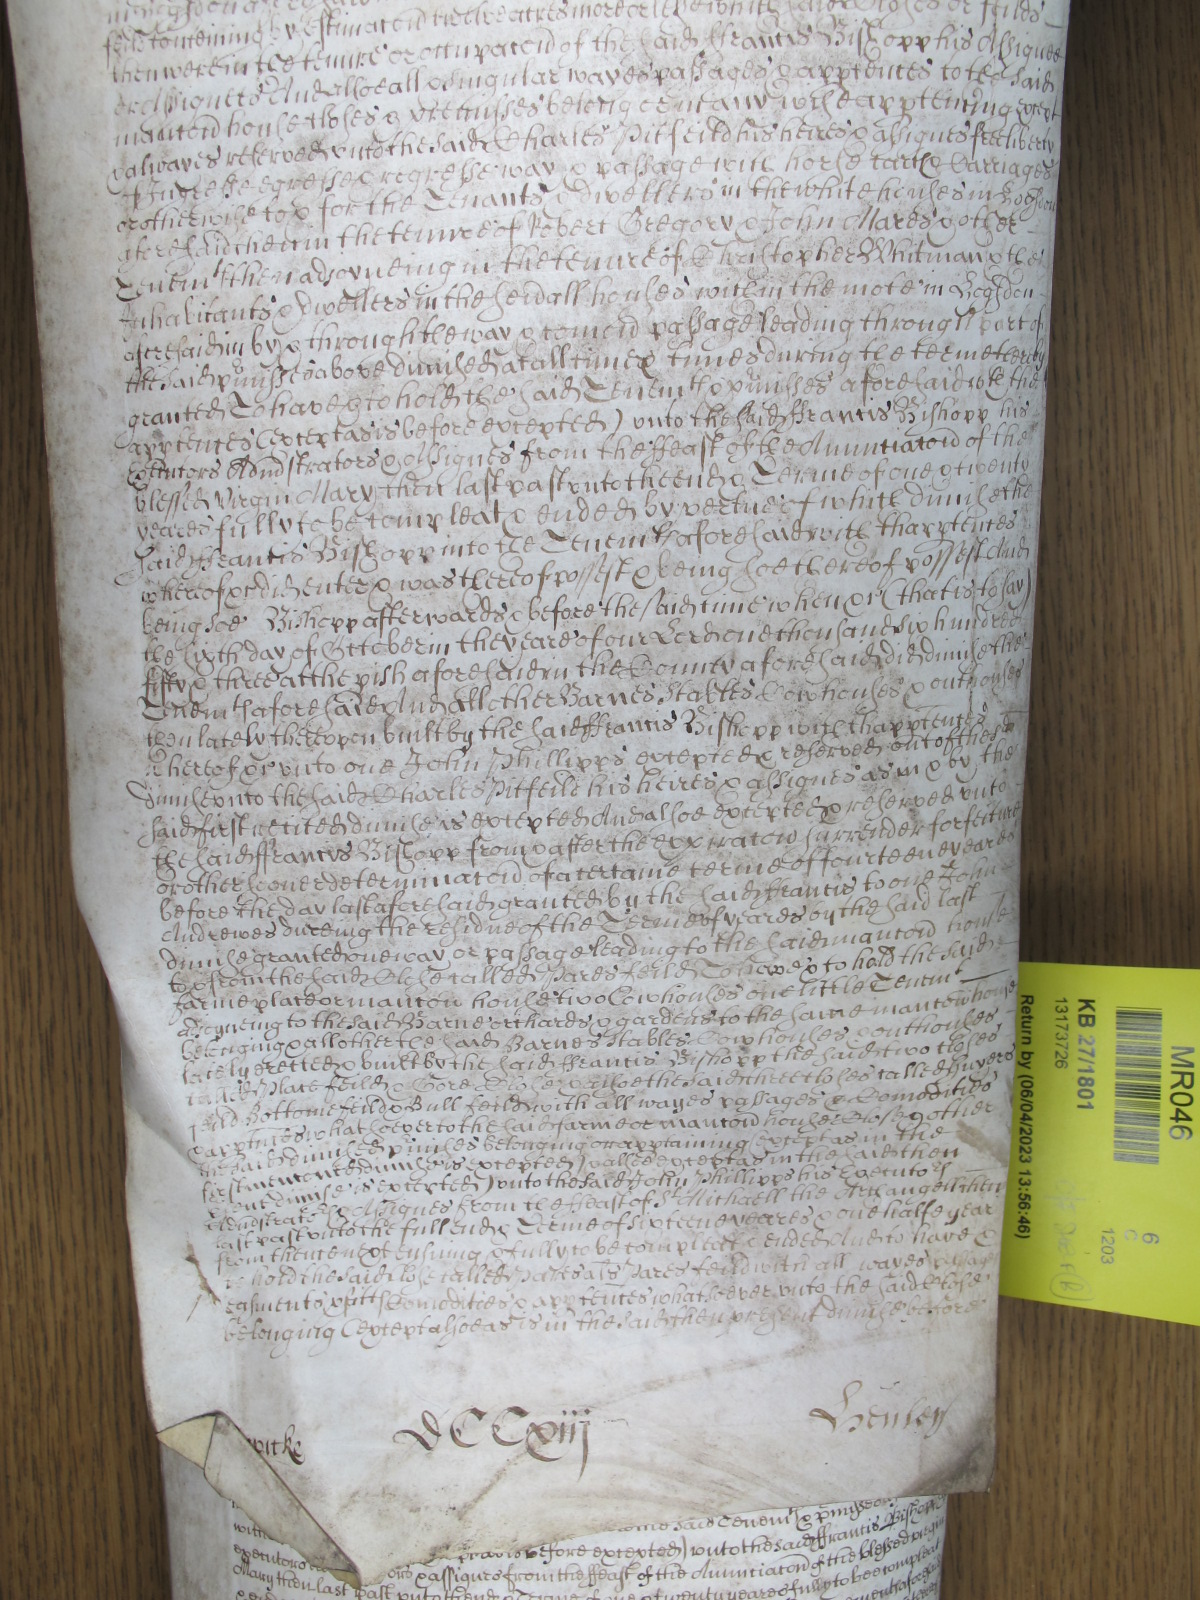 feild conteining by estimacon twelve acres more or lesse which said Closes or feilds
then were in the tenure or occupacon of the said Francis Bishopp his Assignee
or Assignees And alsoe all & singular wayes passages & apptences to the said
mancon house closes & premisses belonging or in any wise apptening except
& alwayes reserved unto the said Charles Pitfeild his heires & assignes free liberty
of Ingresse egresse & regresse way & passage with horse cart & Carriages
or otherwise to & for the Tenants & dwellers in the white houses in Hogsdon
aforesaid then in the tenure of Robert Gregory & John Mares & other
Tenemts then adioyneing in the tenure of Christopher Whitman & the
Inhabitants & dwellers in the seidall houses within the mote in Hogsdon
aforesaid in by & through the way & comon passage leading through part of
the said pmisses above dimised at all time & times during the terme thereby
granted To have & to hold the said Tenemts & pmisses aforesaid with the
apptences (except as is before excepted) unto the said Francis Bishopp his
Executors Admstrators & Assignes from the Feast of the Annunciacon of the
blessed virgin Mary then last past unto the end & Terme of one & twenty
yeares fully to be compleat & ended by vertue of which dimise the
said Francis Bishopp into the Tenemts aforesaid with thapptences
whereof &c did enter & was thereof possest & being soe thereof possest And
being soe Bishopp afterwards & before the said time when &c (that is to say)
the sixth day of October in the yeare of our Lord one thousand six hundred
fifty & three at the pish aforesaid in the County aforesaid did dimise the
Tenemts aforesaid And all other Barnes Stables Cowhouses & outhouses
then lately thereupon built by the said Francis Bishopp with thapptences
whereof &c unto one John Phillipps excepted & reserved out of the
dimise unto the said Charles Pitfeild his heires & assignes as in & by the
said first recited dimise is excepted And alsoe excepted & reserved unto
the said Francis Bishopp from & after the expiracon surrender forfeiture
or other sooner determinacon of a certaine terme of fourteen yeares
before the day last aforesaid granted by the said Francis to one John
Andrewes dureing the residue of the Terme of yeares by the said last
dimise granted one way or passage leading to the said mancon house
to & from the said Close called Pares feild To have & to hold the said
farme place or mancon house two Cowhouses one little Tenemt
adioyneing to the said Barne orchards & gardens to the same mancon house
belonging & all other the said Barnes Stables Cowhouses & outhouses
lately erected & built by the said Francis Bishopp the said two closes
called Place feild & Gore Close & alsoe the said three closes called
feild Bottome feild & Bull feild with all wayes passages & Comodities
& apptences whatsoever to the said farme or mancon house Closes & other
the said dimised pmisses belonging or apptaining (except as in the
first mentioned dimise is excepted) & alsoe except as in the said then
psent dimise is excepted) unto the said John Phillipps his Executors
Admstrators & Assignes from the Feast of St Michaell the Archangell then
last past unto the full end & Terme of sixteene yeares & one halfe year
from thence next ensuing & fully to be compleat & ended And to have &
to hold the said Close called Pares als Pares feild with all wayes passages
easments pfitts Comodities & apptences whatsoever unto the said Close
belonging (except alsoe as is in the said then present dimise before
DCCxiij
Henley
executors
& assignes from the feast of the Annunciacon of the blessed virgin
Mary then last past unto the end & Terme of one & twenty yeares fully to bee compleat
MR046
KB 27/1801
13173726
Return by (06/04/2023 13:56:46)
6
C
1203